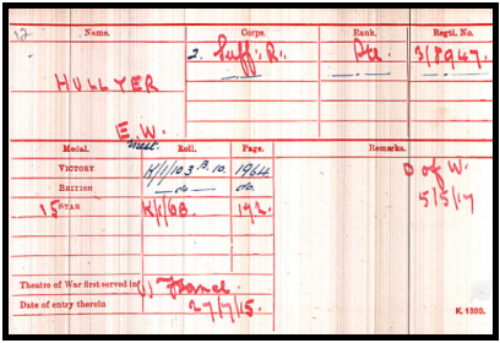 12
Name. Corps. Rank. Regtl. No.
2. Suff: R. Pte. 3/8947.
HULLYER
E.W.
Medal. Roll. Page. Remarks.
VICTORY K/1/103 B.10. 1964 D of W.
BRITISH do do. 5/5/17
15 STAR K/1/6B. 192.
Theatre of War first served in (1) France.
Date of entry therein 27/7/15.
K. 1380.